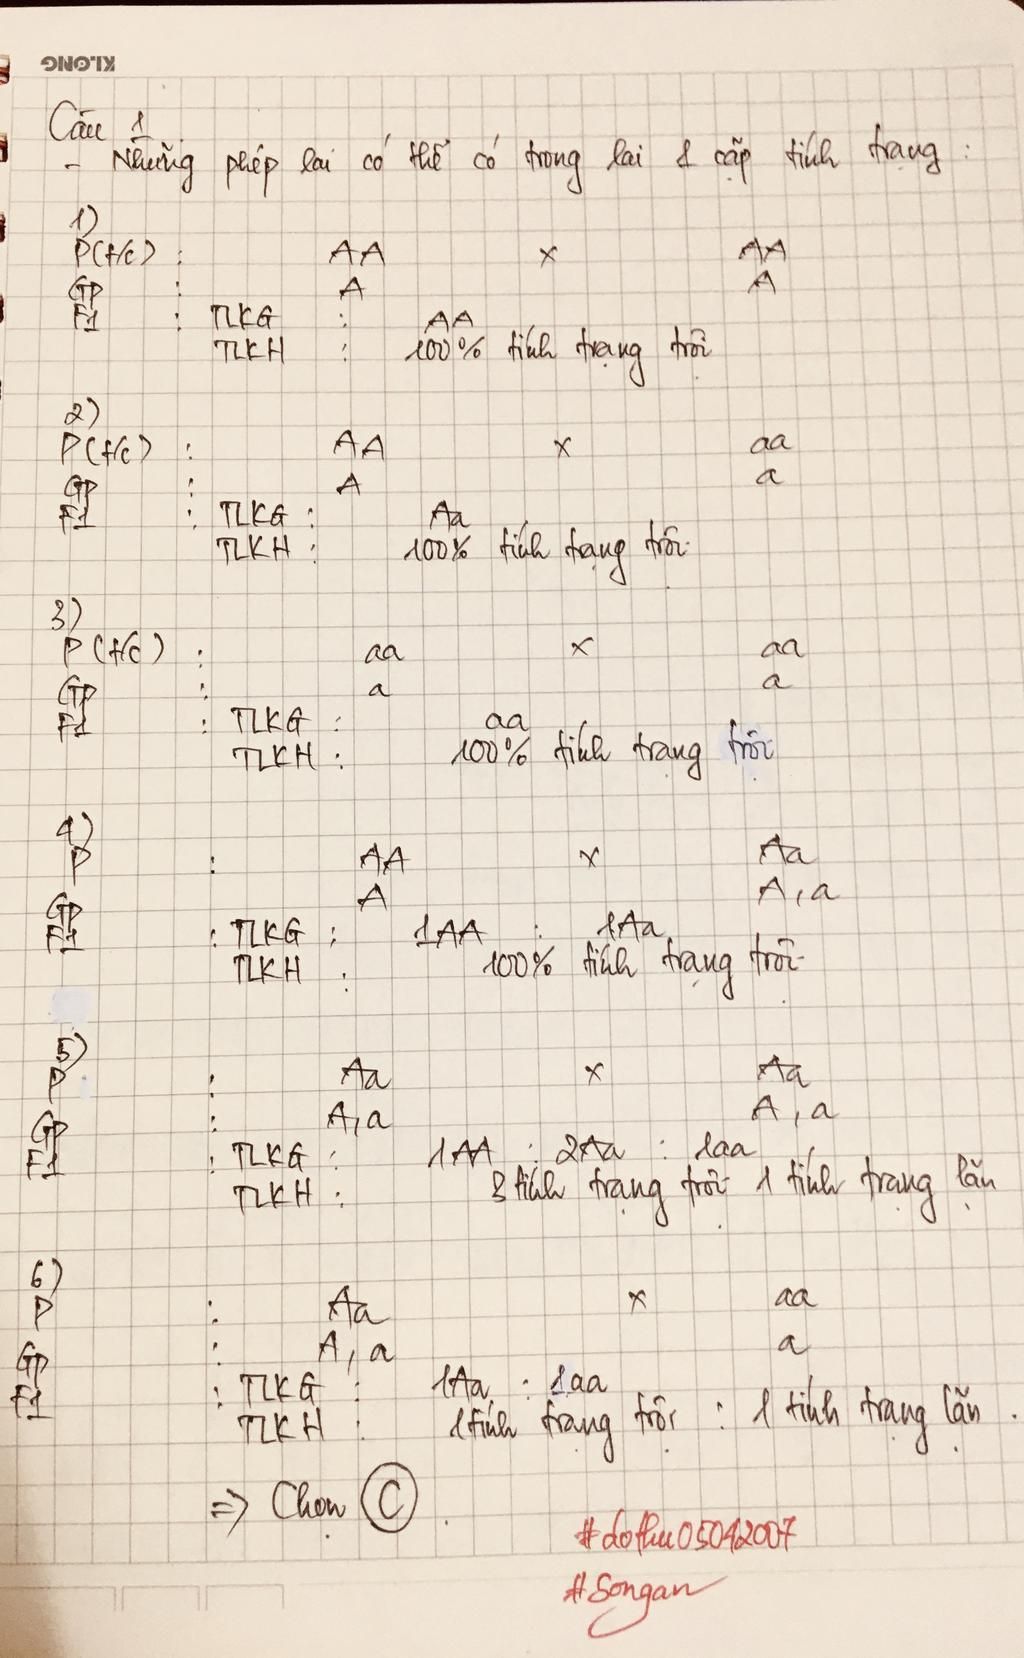 KLONG
Câu 1
- Những phép lai có thể có trong lai 1 cặp tính trạng :
1)
P(t/c) : AA x AA
Gp : A A
F1 : TLKG : AA
TLKH : 100% tính trạng trội
2)
P(t/c) : AA x aa
Gp : A a
F1 : TLKG : Aa
TLKH : 100% tính trạng trội
3)
P(t/c) : aa x aa
Gp : a a
F1 : TLKG : aa
TLKH : 100% tính trạng trội
4)
P : AA x Aa
Gp A A, a
F1 : TLKG : 1AA : 1Aa
TLKH : 100% tính trạng trội
5)
P : Aa x Aa
Gp : A, a A, a
F1 : TLKG : 1AA : 2Aa : 1aa
TLKH : 3 tính trạng trội 1 tính trạng lặn
6)
P : Aa x aa
Gp : A, a a
F1 : TLKG : 1Aa : 1aa
TLKH : 1 tính trạng trội : 1 tính trạng lặn .
=> Chọn C .
#dothu05042007
#Songan